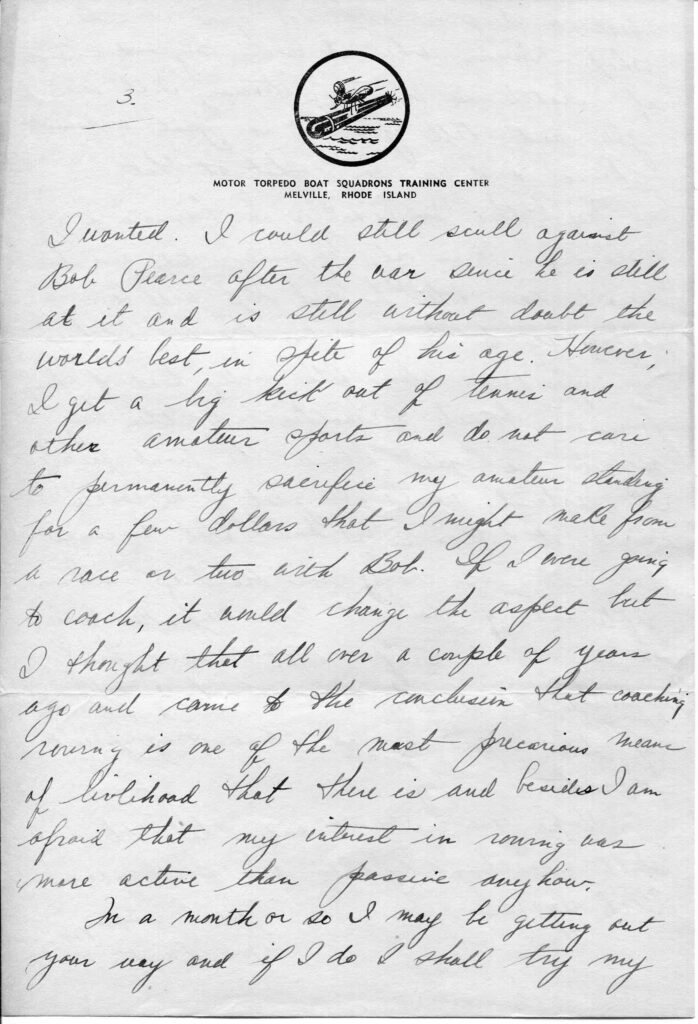 3.
MOTOR TORPEDO BOAT SQUADRONS TRAINING CENTER
MELVILLE, RHODE ISLAND
I wanted. I could still scull against
Bob Pearce after the war since he is still
at it and is still without doubt the
world's best, in spite of his age. However,
I get a big kick out of tennis and
other amateur sports and do not care
to permanently sacrifice my amateur standing
for a few dollars that I might make from
a race or two with Bob. If I were going
to coach, it would change the aspect but
I thought that all over a couple of years
ago and came to the conclusion that coaching
rowing is one of the most precarious means
of livlihood that there is and besides I am
afraid that my interest in rowing was
more active than passive anyhow.
In a month or so I may be getting out
your way and if I do I shall try my